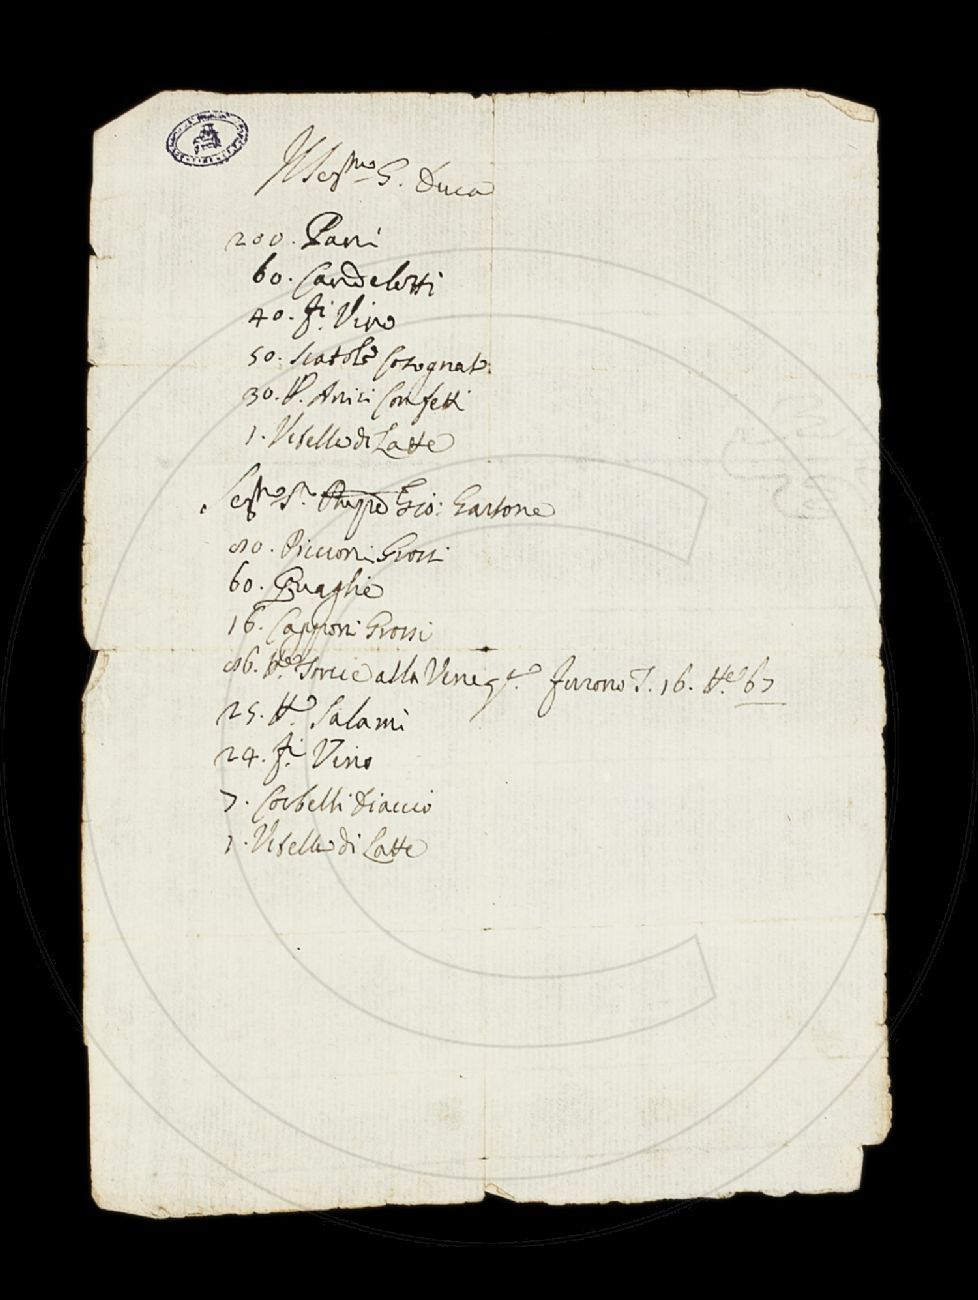 Il Ser.mo G. Duca
200. Pani
60. Candelotti
40. fi. Vino
50. Scatole Cotognat.
30. lb. Anici Confetti
1. Vitella di Latte
Ser.mo S.r Gio: Gastone
80. Piccioni Grossi
60. Quaglie
16. Capponi Grossi
86. lb.e Torcie alla Venez.a furono T. 16. lb.e 67
25. lb.e Salami
24. fi. Vino
7. Corbelli diaccio
1. Vitella di Latte